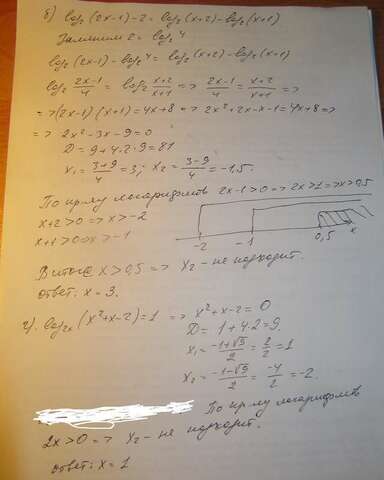 б) log₂(2x-1)-2=log₂(x+2)-log₂(x+1)
Заменим 2 = log₂4
log₂(2x-1)-log₂4=log₂(x+2)-log₂(x+1)
log₂ (2x-1)/4 = log₂ (x+2)/(x+1) => (2x-1)/4 = (x+2)/(x+1) =>
=>(2x-1)(x+1)=4x+8 => 2x²+2x-x-1=4x+8 =>
=> 2x²-3x-9=0
D=9+4·2·9=81
x₁=(3+9)/4=3; x₂=(3-9)/4=-1,5.
По пр-лу логарифмов 2x-1>0=>2x>1=>x>0,5
x+2>0=>x>-2
x+1>0=>x>-1
-2 -1 0,5 x
В итоге x>0,5 => x₂-не подходит.
ответ: x=3.
г). log₂ₓ(x²+x-2)=1 => x²+x-2=0
D=1+4·2=9.
x₁=(-1+√9)/2=2/2=1
x₂=(-1-√9)/2=-4/2=-2.
По пр-лу логарифмов
2x>0=> x₂-не подходит.
ответ: x=1